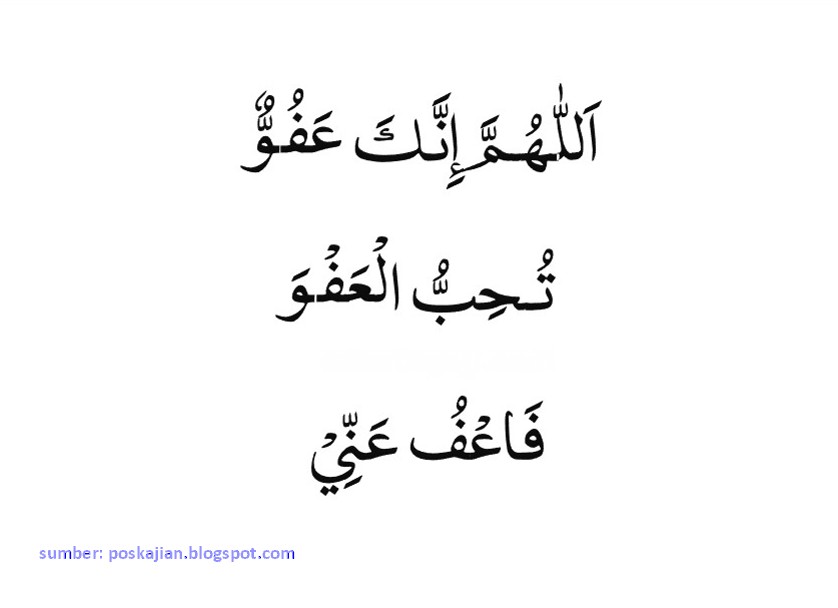 اَللّٰهُمَّ إِنَّكَ عَفُوٌّ
تُحِبُّ الْعَفْوَ
فَاعْفُ عَنِّيْ
sumber: poskajian.blogspot.com